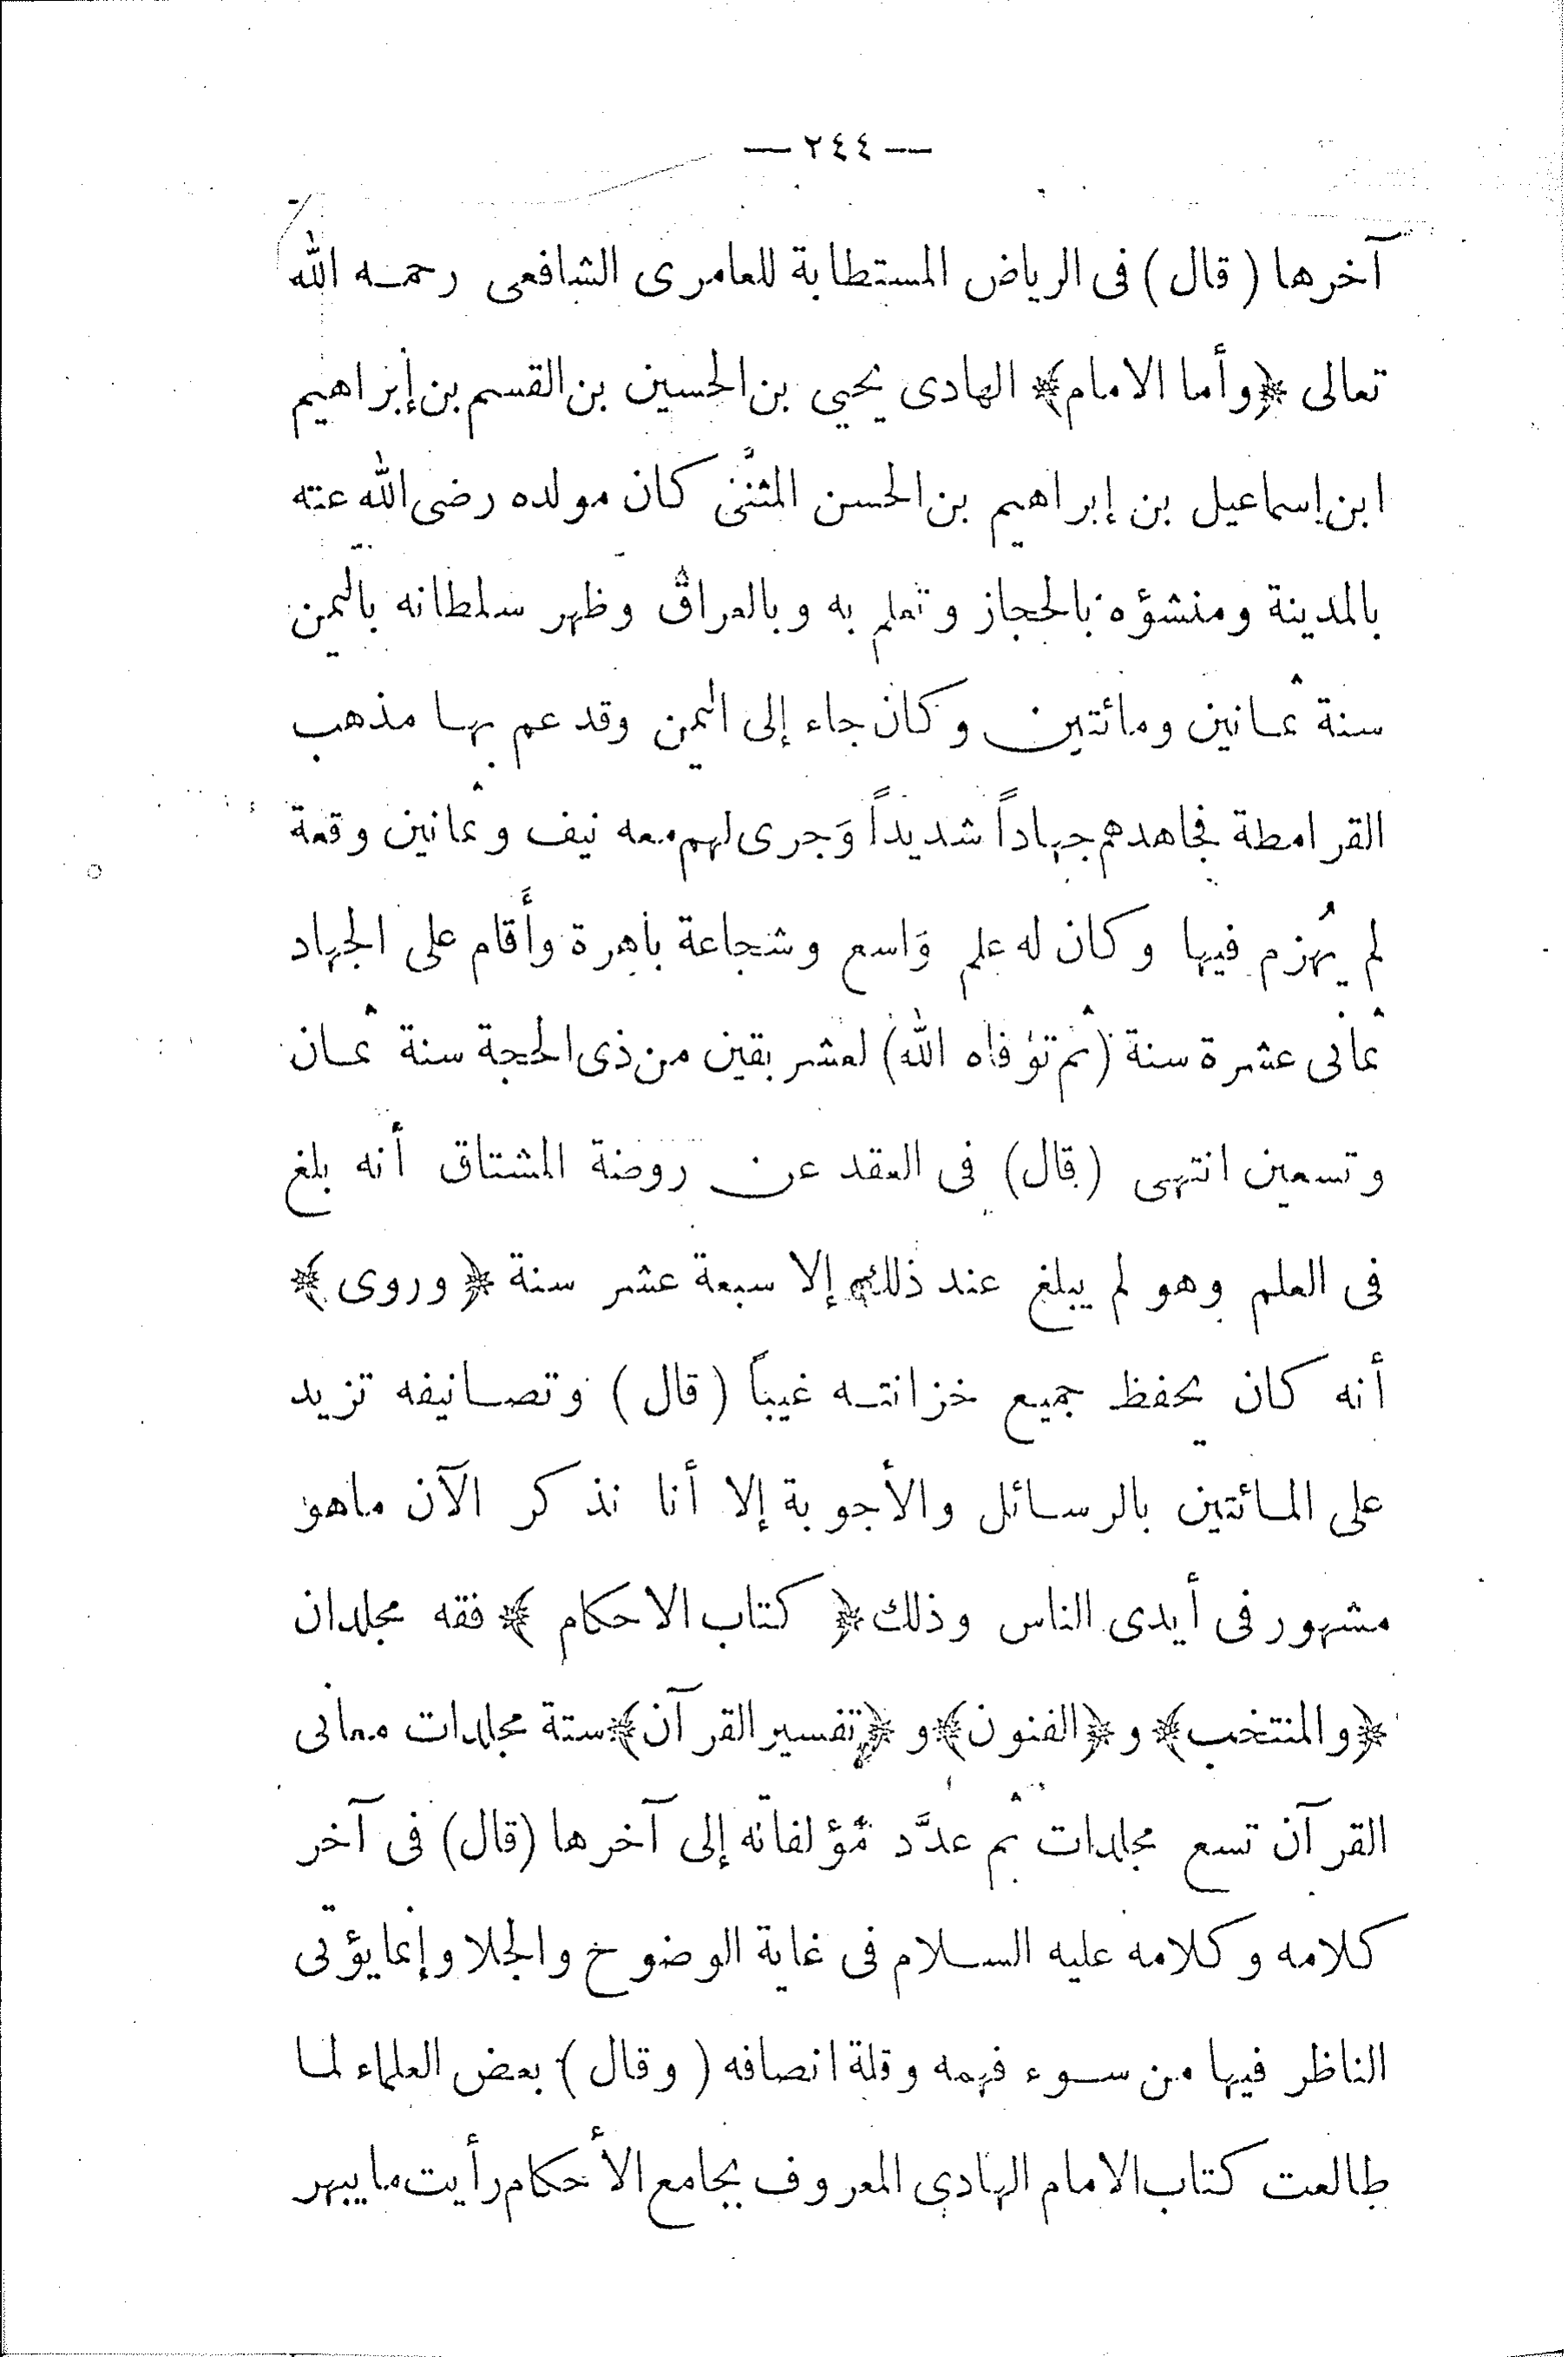 — ٢٤٤ —
آخرها ( قال ) فى الرياض المستطابة للعامرى الشافعى رحمه الله
تعالى ﴿وأما الامام﴾ الهادى يحيى بن الحسين بن القسم بن إبراهيم
ابن إسماعيل بن إبراهيم بن الحسن المثنى كان مولده رضى الله عنه
بالمدينة ومنشؤه بالحجاز وتعلم به وبالعراق وظهر سلطانه باليمن
سنة ثمانين ومائتين وكان جاء إلى اليمن وقد عم بها مذهب
القرامطة فجاهدهم جهاداً شديداً وَجرى لهم معه نيف وثمانين وقعة
لم يُهزم فيها وكان له علم وَاسع وشجاعة باهرة وأَقام على الجهاد
ثمانى عشرة سنة (ثم توفاه الله) لعشر بقين من ذى الحجة سنة ثمان
وتسعين انتهى (قال) فى العقد عن روضة المشتاق أنه بلغ
فى العلم وهو لم يبلغ عند ذلك إلا سبعة عشر سنة ﴿وروى﴾
أنه كان يحفظ جميع خزانته غيباً ( قال ) وتصانيفه تزيد
على المائتين بالرسائل والأجوبة إلا أنا نذكر الآن ماهو
مشهور فى أيدى الناس وذلك ﴿ كتاب الاحكام ﴾ فقه مجلدان
﴿والمنتخب﴾ و ﴿الفنون﴾ و ﴿تفسير القرآن﴾ ستة مجلدات معانى
القرآن تسع مجلدات ثم عدَّد مُؤلفاته إلى آخرها (قال) فى آخر
كلامه وكلامه عليه السلام فى غاية الوضوح والجلا وإنما يؤتى
الناظر فيها من سوء فهمه وقلة انصافه ( وقال ) بعض العلماء لما
طالعت كتاب الامام الهادى المعروف بجامع الأحكام رأيت ما يبهر